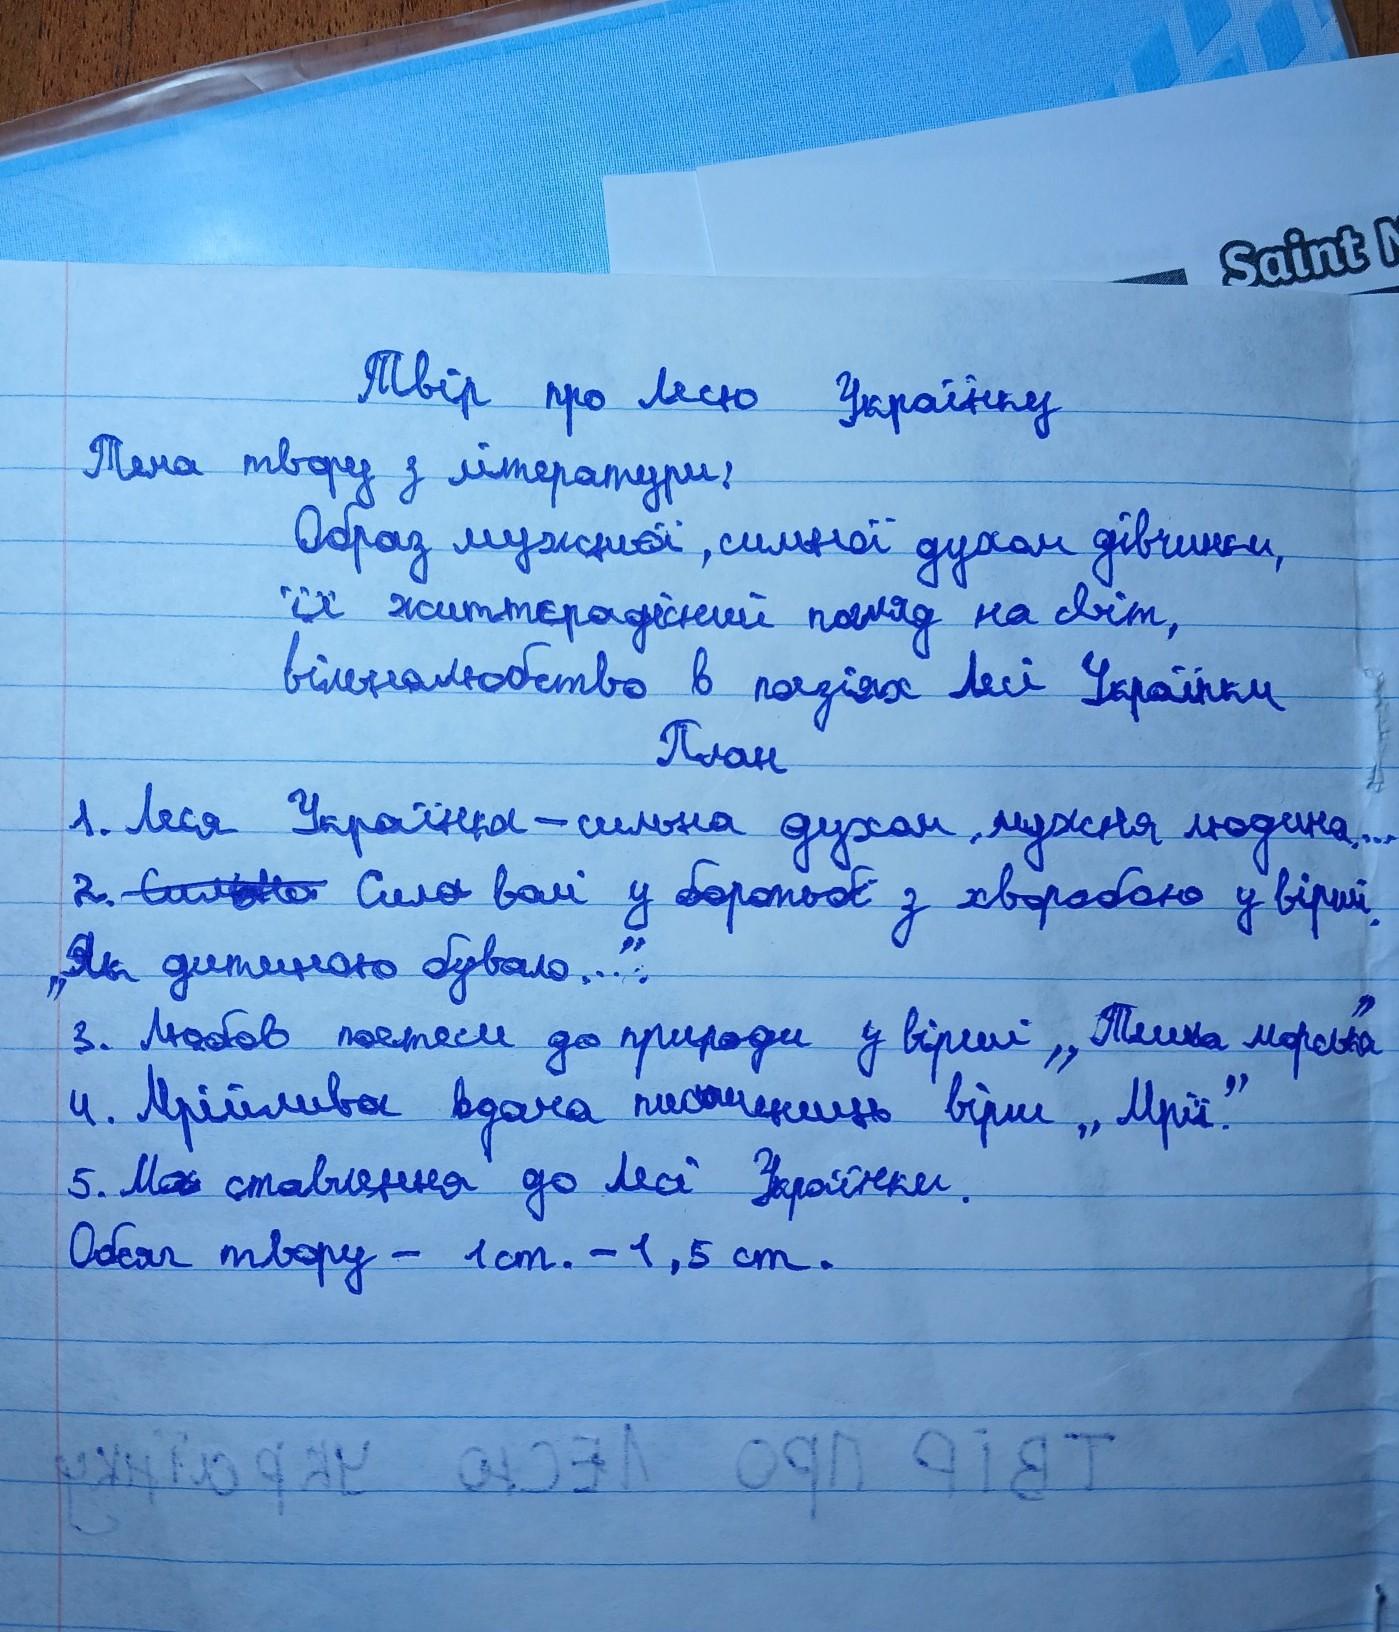 Saint
Твір про Лесю Українку
Тема твору з літератури:
Образ мужньої, сильної духом дівчинки,
її життєрадісний погляд на світ,
вільнолюбство в поезіях Лесі Українки
План
1. Леся Українка – сильна духом, мужня людина...
2. Сила волі у боротьбі з хворобою у вірші
„Як дитиною бувало...”.
3. Любов поетеси до природи у вірші „Тиша морська”
4. Мрійлива вдача письменниць вірш „Мрії.”
5. Моє ставлення до Лесі Українки.
Обсяг твору – 1 ст. – 1,5 ст.
ТВІР ПРО ЛЕСЮ УКРАЇНКУ